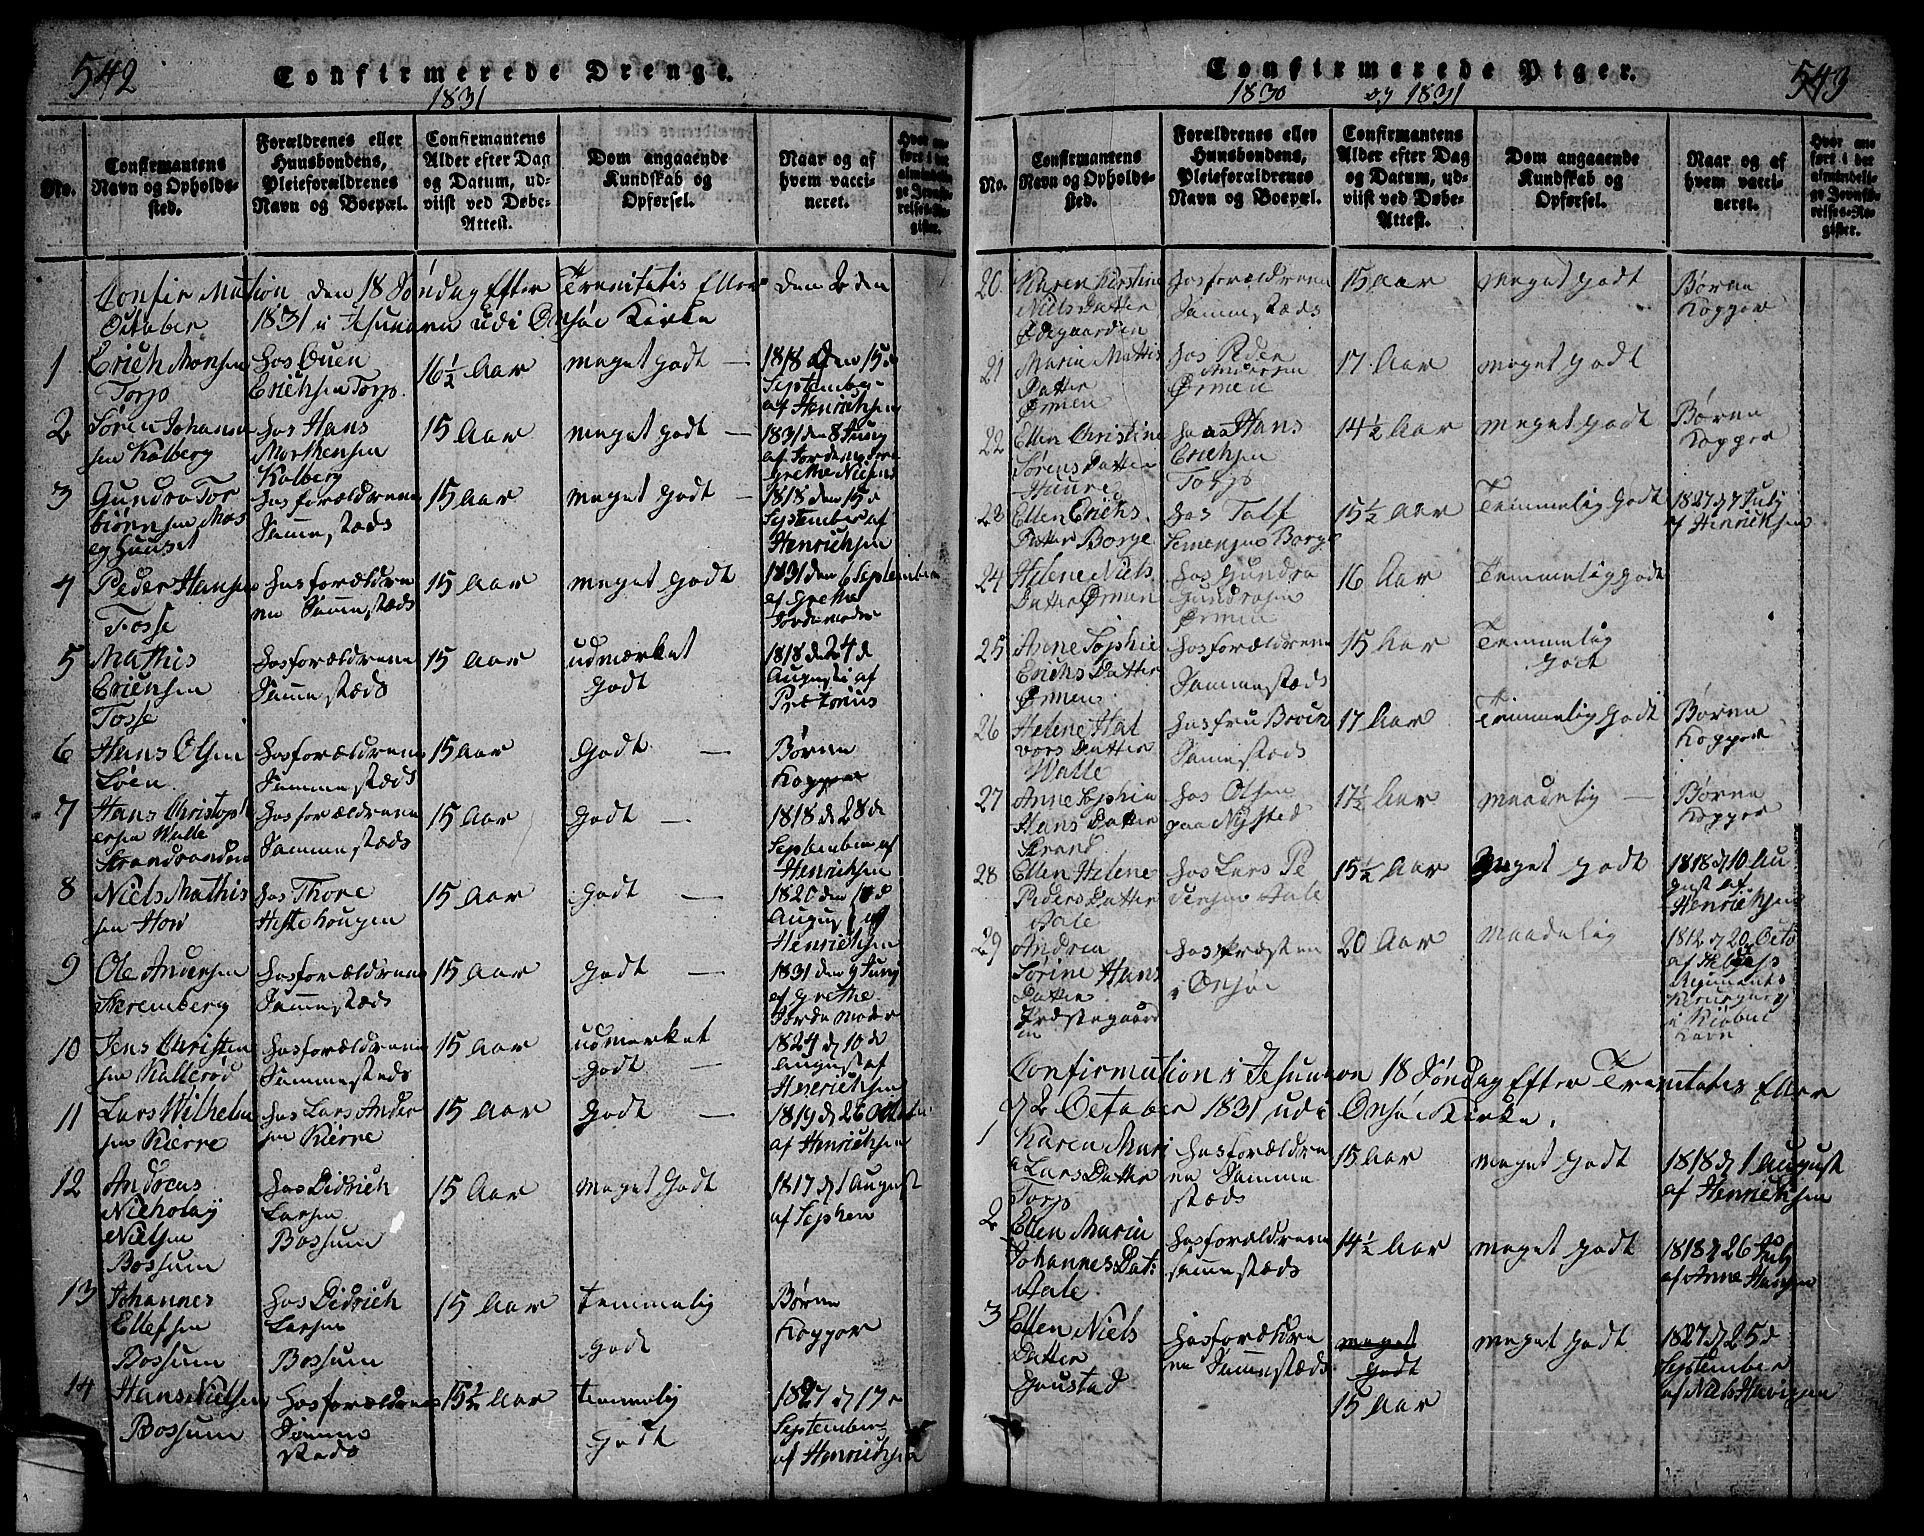 542
Confirmerede Drenge.
1831
No.
Confirmantens
Navn og Opholds-
sted.
Forældrenes eller
Huusbondens,
Pleieforældrenes
Navn og Boepæl.
Confirmantens
Alder efter Dag
og Datum, ud-
viist ved Døbe-
Attest.
Dom angaaende
Kundskab og
Opførsel.
Naar og af
hvem vacci-
neret.
Hvor an-
ført i det
almindeli-
ge Jevnfø-
relses-Re-
gister.
Confirmation den 18 Søndag Efter Trenitatis Eller den 2 den
October 1831 udi Onsøe Kirke
1
Erich Monsen
Torp
hos Ouen
Erichsen Torp
16½ Aar
meget godt —
1818 den 15 d
September
af Henrichsen
2
Søren Johann
sen Kolberg
hos Hans
Morthensen
Kolberg
15 Aar
meget godt —
1831 den 8 Juny
af
Grethe Nielsen
3
Gundro Tor
biørnsen Mos
eghuuset
hos forældrene
Sammestæds
15 Aar
meget godt —
1818 den 15 d
September af
Henrichsen
4
Peder Hansen
Fosse
hos forældre
ne Sammestæds
15 Aar
meget godt
1831 den 6 September
af Grethe
Jordemoder
5
Mathis
Ericnsen
Tosse
hos forældrene
Sammestæds
15 Aar
udmærket
godt
1818 de 24 d
Augusti af
Prætorius
6
Hans Olsen
Løen
hos forældrene
Sammestæds
15 Aar
godt —
Børne
Kopper
7
Hans Christoph
ersen Walle
Strandranden
hos forældrene
Sammestæds
15 Aar
godt —
1818 d 28 d
September af
Henrichsen
8
Niels Mathis
sen How
hos Thore
Hestehougen
15 Aar
godt —
1820 den 10 d
August af
Henrichsen
9
Ole Andersen
Skeremberg
hos forældrene
Sammestæds
15 Aar
godt —
1831 den 9 Juny
af Grethe
Jorde Moder
10
Jens Christen
sen Kallerød
hos forældrene
Sammestæds
15 Aar
udmerket
godt —
1824 d 10 d
August af
Henrichsen
11
Lars Wilhelm
sen Kierre
hos Lars Ander
sen Kierne
15 Aar
godt —
1819 d 26 October
af Henrichsen
12
Andreas
Nicholay
Nielsen
Bossum
hos Didrich
Larsen
Bossum
15 Aar
meget godt
1817 d 1 August
af Sephen
13
Johannes
Ellefsen
Bossum
hos Didrich
Larsen
Bossum
15 Aar
temmelig
godt
Børne
Kopper
14
Hans Nielsen
Bossum
hos forældrene
Samme
stæds
15½ Aar
temmelig
godt
1827 d 17 d
September
af Henrichsen
543
Confirmerede Piger.
1830 og 1831
No.
Confirmantens
Navn og Opholds-
sted.
Forældrenes eller
Huusbondens,
Pleieforældrenes
Navn og Boepæl.
Confirmantens
Alder efter Dag
og Datum, ud-
viist ved Døbe-
Attest.
Dom angaaende
Kundskab og
Opførsel.
Naar og af
hvem vacci-
neret.
Hvor an-
ført i det
almindeli-
ge Jevnfø-
relses-Re-
gister.
20
Karen Kirstine
Niels Datter
Ødegaarden
hos forældrene
Sammestæds
15 Aar
meget godt
Børne
Kopper
21
Maria Mattis
Datter
Ørmen
hos Peder
Andersen
Ørmen
17 Aar
meget godt
22
Ellen Christine
Sørens Datter
Huure
hos Hans
Erichsen
Torp
14½ Aar
meget godt
Børne
Kopper
23
Ellen Erichs
Datter Borge
hos Tolf
Semensens Borge
15½ Aar
Temmelig godt
1827 d 7 July
af Henrichsen
24
Helene Niels
Datter Ørmen
hos Gundro
Gundrosen
Ørmen
16 Aar
Temmelig godt
25
Anne Sophie
Erichs Datter
Ørmen
hos forældrene
Sammestæds
15 Aar
Temmelig
godt
26
Helene Hal
vors Datter
Walle
hos fru Bruun
Sammestæds
17 Aar
Temmelig godt
Børne
Kopper
27
Anne Sophia
Hans Datter
Strand
hos Olsen
paa Nysted
17½ Aar
maadelig —
Børne
Kopper
28
Ellen Helene
Peders Datter
Aale
hos Lars Pe
dersen Aale
15½ Aar
Meget godt
1818 d 10 Au
gust af
Henrichsen
29
Andrea
Sørine Hans
Datter
Præstegaard
en
hos Præsten
i Onsøe
20 Aar
maadelig
1812 d 20 Octo
af
Regiments
Kirurgus
i Kiøben
havn
Confirmation 18 Søndag Efter Trenitates Eller
d 2 October 1831 udi Onsøe Kirke.
1
Karen Mari
a Lars Datter
Torp
hos forældre
ne Samme
stæds
15 Aar
meget godt
1818 d 1 August
af Henrichsen
2
Ellen Maria
Johannes Dat:
Aale
hos forældrene
sammestæds
14½ Aar
meget godt
1818 d 26 July
af Anne Hansen
3
Ellen Niels
Datter
Gaustad
hos forældre
ne Sammestæds
meget
godt
15 Aar
meget godt
1827 d 25 d
September
af Niels